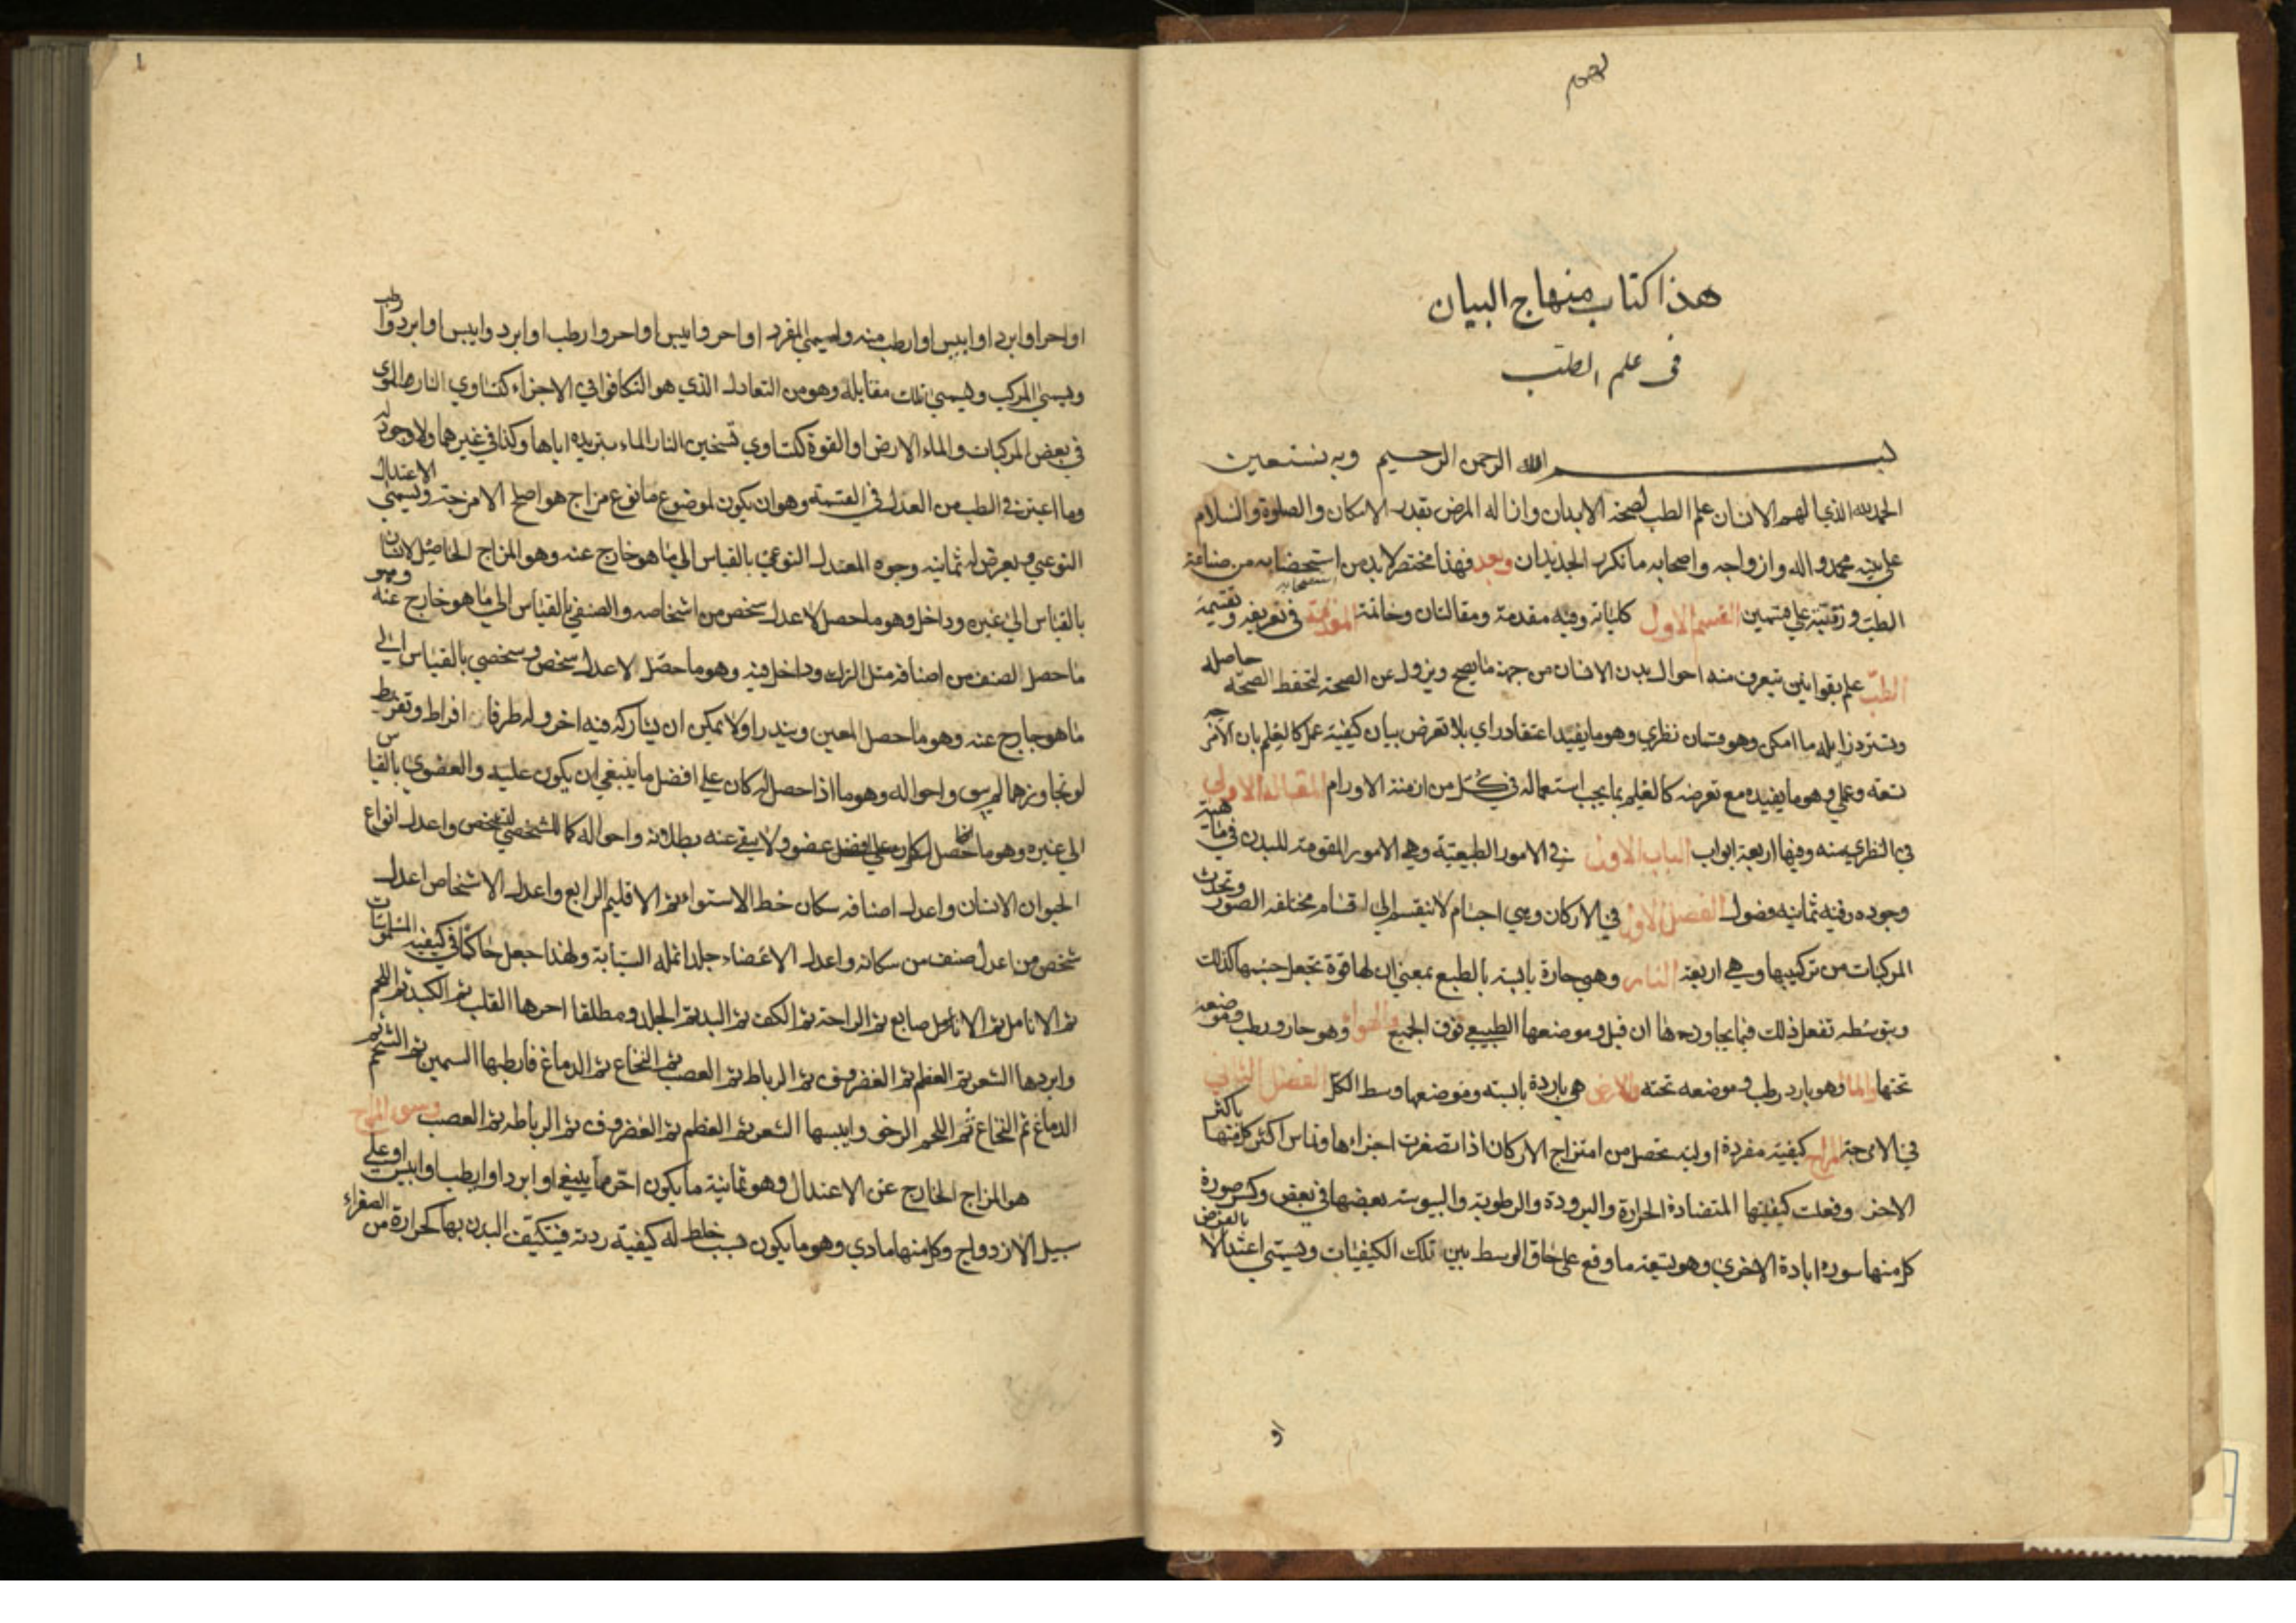 هذا كتاب منهاج البيان
فى علم الطب
بسم الله الرحمن الرحيم وبه نستعين
الحمد لله الذي الهم الانسان علم الطب لصحة الابدان وازاله المرض بقدر الامكان والصلوة والسلام
على نبيه محمد واله وازواجه واصحابه ما تكرر الجديدان وبعد فهذا مختصر لا بد من استحضابه من صناعة
استصحابه
الطب ورتبته على قسمين القسم الاول كلياته وفيه مقدمة ومقالتان وخاتمة المقدمة في تعريفه وتقسيمه
الطب علم بقوانين يتعرف منه احوال بدن الانسان من جهة ما يصح ويزول عن الصحة لتحفظ الصحة حاصله
وتسترد زايله ما امكن وهو قسمان نظري وهو ما يفيد اعتقاد راي بلا تعرض بيان كيفية عمل كالعلم بان الامزجة
تسعة وعملي وهو ما يفيده مع تعرضه كالعلم بما يجب استعماله في كل من ازمنة الاورام المقالة الاولى
في النظري منه وفيها اربعة ابواب الباب الاول في الامور الطبيعية وهي الامور المقومة للبدن في ماهيته
وجوده وفيه ثمانيه فصول الفصل الاول في الاركان وهي اجسام لا تنقسم الى اقسام مختلفه الصور وتحدث
المركبات من تركيبها وهي اربعة النار وهي حارة يابسة بالطبع بمعني ان لها قوة تجعل جسمها كذلك
وبتوسطه تفعل ذلك فيما يجاورها ان قبل وموضعها الطبيعي فوق الجميع والهواء وهو حار ورطب وموضعه
تحتها والما وهو بارد رطب وموضعه تحته والارض هي باردة يابسة وموضعها وسط الكل الفصل الثاني
في الامزجة المزاج كيفية مفردة اوليه تحصل من امتزاج الاركان اذا تصغرت اجزاءها وتماس اكثر كل منها باكثر
الاخر وفعلت كيفيتها المتضادة الحرارة والبرودة والرطوبة واليبوسة بعضها في بعض وكسر صورة
كل منها سورة ابادة الاخري وهو تسعة ما وقع على حاق الوسط بين تلك الكيفيات ويسمى اعتدالا بالفرض
او
١
او احر او ابرد او ايبس او ارطب منه ويسمى المفرد او احر وايبس او احر وارطب او ابرد وايبس او ابرد وارطب
ويسمى المركب ويسمى تلك مقابله وهو من التعادل الذي هو التكافؤ في الاجزاء كتساوي النار الهوي
في بعض المركبات والماء الارض او القوة كتساوي تسخين النار الماء بتبريده اياها وكذا في غيرهما ولا وجود له
وما اعتبر في الطب من العدل في القسمة وهو ان يكون لموضوع ما نوع مزاج هو اصلح الامزجة ويسمى الاعتدال
النوعي ويعرض له ثمانيه وجوه المعتدل النوعي بالقياس الي ما هو خارج عنه وهو المزاج الحاصل لانسان
بالقياس الي غيره وداخل وهو ما حصل لاعدل شخص من اشخاصه والصنفي بالقياس الي ما هو خارج عنه وهو
ما حصل لصنف من اصنافه مثل الترك وداخل فيه وهو ما حصل لاعدل شخص وشخصي بالقياس الي
ما هو خارج عنه وهو ما حصل لمعين ويندر اولا يمكن ان يشاركه فيه اخر وله طرفان افراط وتفريط
لو تجاوزهما لم يبق واحواله وهو ما اذا حصل له كان علي افضل ما ينبغي ان يكون عليه والعضوي بالقياس
الي غيره وهو ما حصل لكل عضو ولا يبقي عنه بطلانه واحواله كما للشخصي لشخص واعدل انواع
الحيوان الانسان واعدل اصنافه سكان خط الاستواء ثم الاقليم الرابع واعدل الاشخاص اعدل
شخص من اعدل صنف من سكانه واعدل الاعضاء جلد انملة السبابة ولهذا جعل حاكما في كيفية الملموسات
ثم الانامل ثم الاصابع ثم الراحة ثم الكف ثم اليد ثم الجلد ومطلقا احرها القلب ثم الكبد ثم اللحم
وابردها الشعر ثم العظم ثم الغضروف ثم الرباط ثم العصب ثم النخاع ثم الدماغ فارطبها السمين ثم الشحم ثم
الدماغ ثم النخاع ثم اللحم الرخو وايبسها الشعر ثم العظم ثم الغضروف ثم الرباط ثم العصب وسوء المزاج
هو المزاج الخارج عن الاعتدال وهو ثمانية ما يكون احر مما ينبغي او ابرد او ارطب او ايبس او علي
سبيل الازدواج وكل منها مادي وهو ما يكون بسبب خلط له كيفية ردته فيتكيف البدن بها كحرارة من الصفراء